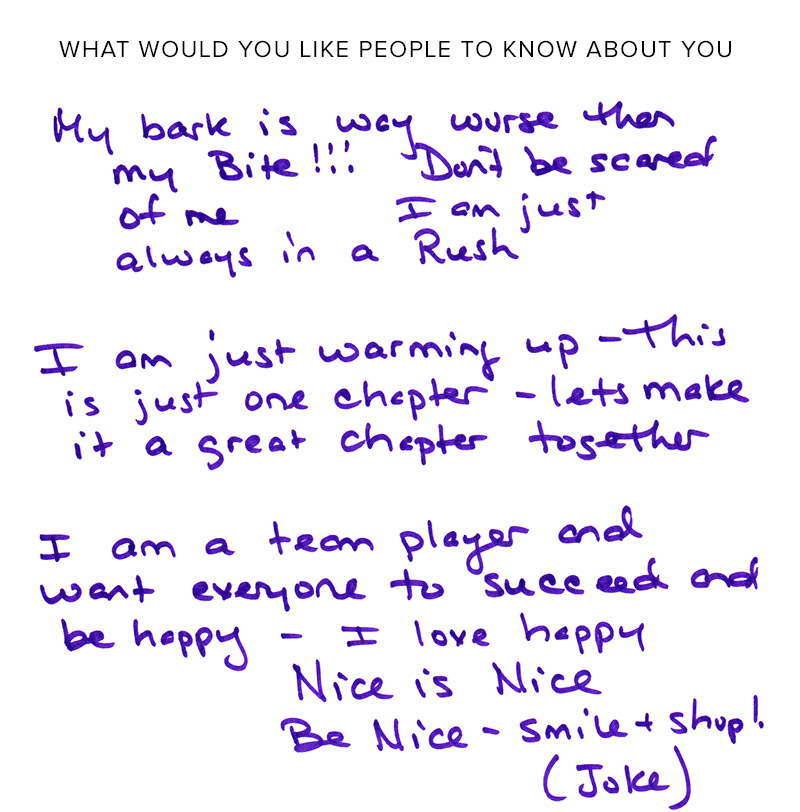 WHAT WOULD YOU LIKE PEOPLE TO KNOW ABOUT YOU
My bark is way wurse then
my Bite!!! Don't be scared
of me I am just
always in a Rush
I am just warming up - This
is just one chapter - lets make
it a great chapter together
I am a team player and
want everyone to succeed and
be happy - I love happy
Nice is Nice
Be Nice - smile + shop!
(Joke)